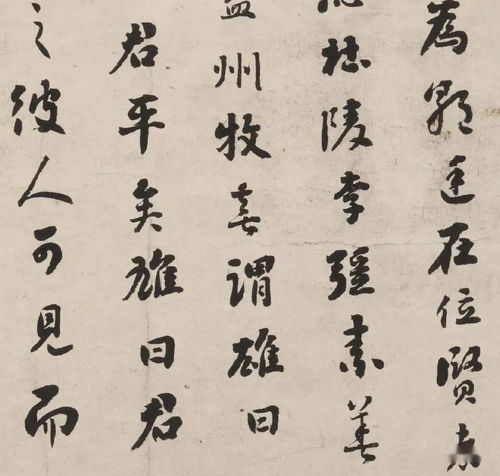 為朝廷在位賢者
杜陵李彊素善
益州牧喜謂雄曰
君平矣雄曰君
之彼人可見而